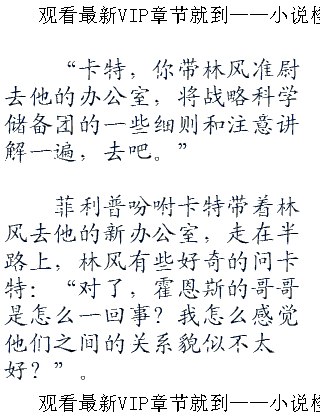 观看最新VIP章节就到——小说
“卡特，你带林风准尉
去他的办公室，将战略科学
储备团的一些细则和注意讲
解一遍，去吧。”
菲利普吩咐卡特带着林
风去他的新办公室，走在半
路上，林风有些好奇的问卡
特：“对了，霍恩斯的哥哥
是怎么一回事？我怎么感觉
他们之间的关系貌似不太
好？”。
观看最新VIP章节就到——小说